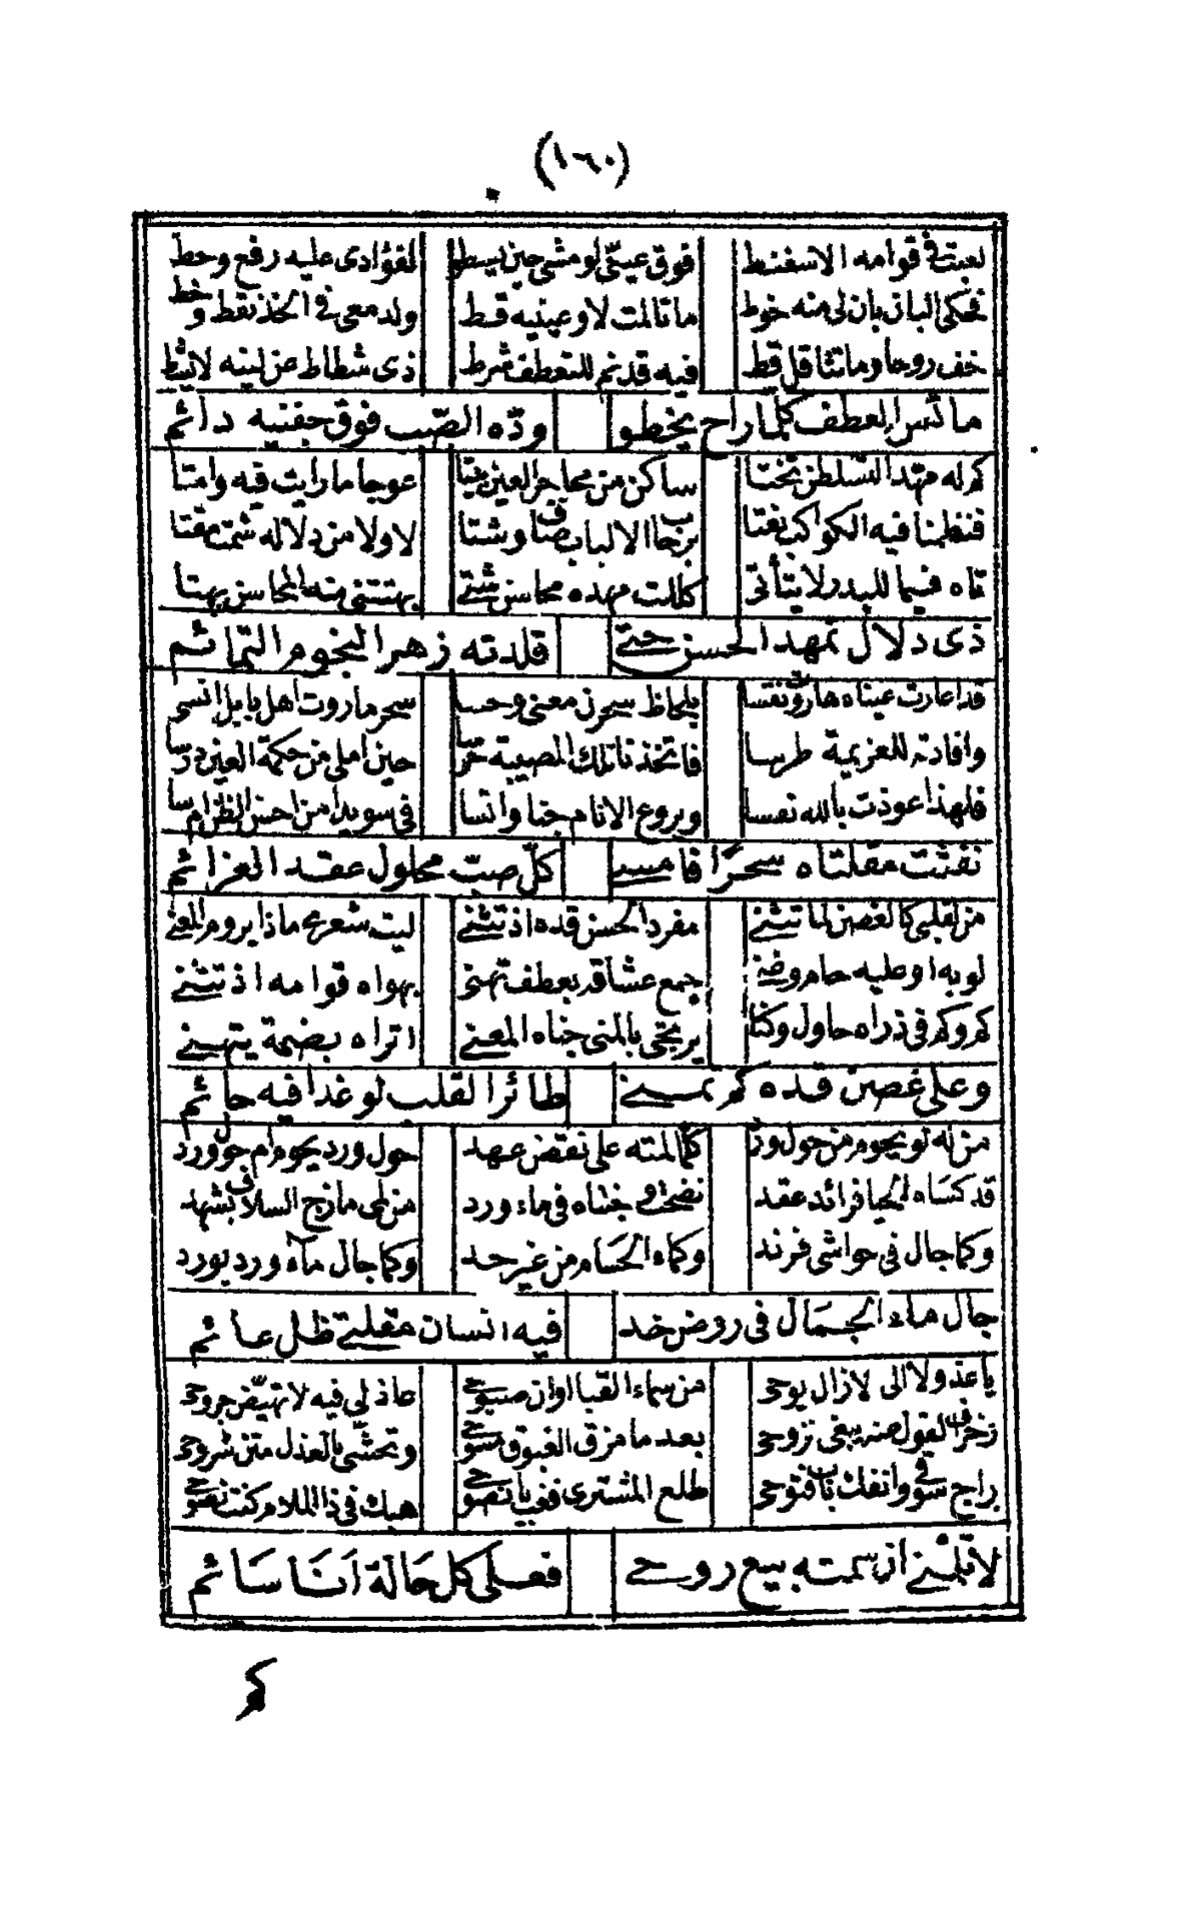 (١٦٠)
لعبت في قوامه الاسفنط فوق عيني لو مشى حين يسطو لفؤادى عليه رفع وحط
فحكى البان بان لى منه خوط ما تالمت لا وعينيه قط ولد معى فى الخد نقط وخط
خف روحا وما تثاقل قط فيه قد تم للتعطف شرط ذى شطاط عن لينه لا يشط
مائس العطف كلما راح يخطو ودّه الصّب فوق جفنيه دائم
كم له مهّد التسلطن تختا ساكن من محاجر العين بيتا عوجا ما رايت فيه وامتا
فنظمنا فيه الكواكب نعتا برحا الالباب وشتا لا ولا من دلاله شمت مقتا
تاه فيما للبدر لا يتأتى كللت مهده محاسن شتى بهتتنى منه المحاسن بهتا
ذى دلال تمهد الحسن حتى قلدته زهر النجوم التمائم
قد اعارت عيناه هاروت نفسا بلحاظ سحرن معنى وحسا سحر ماروت اهل بابل انسى
وافادته للعزيمة طرسا فاتخذنا تلك المصيبة حين املى من حكمة العين درسا
فلهذا عوذت بالله نفسا وبروع الانام جنا وانسا فى سويدا من احسن الظن
نفثت مقلتاه سحرًا فامسى كلّ صبّ محلول عقد العزائم
من لقلبى كالغصن لما تثنى مفرد الحسن قده اذ تثنى ليت شعرى ماذا يروم المعنى
لو به او عليه حام وضنى جمع عشاقه بعطف تهنى بهواه قوامه اذ تثنى
كم وكم فى ذراه حاول وكنا يرتجى بالمنى جناه المعنى اتراه بضمة يتهنى
وعلى غصن قده كم تمنى طائر القلب لو غدا فيه حائم
من له لو يحوم من حول ورد كلما لمته على نقض عهد حول ورد يحوم ام حول ورد
قد كساه الحيا فرائد عقد نضحت وجنتاه فى ماء ورد من لمى مازج السلاف بشهد
وكما جال فى حواشى فرند وكماء الحسام من غير حد وكما جال ماء ورد بورد
جال ماء الجمال فى روض خد فيه انسان مقلتى ظل عائم
يا عذولا الى لازال يوحى من سماء القبا اوان صبوحى عاذلى فيه لا تهيّض جروحى
زخرف القول منه يبغى نزوحى بعد ما مزق الغبوق مسوحى وتحشّى بالعذل متن شروحى
راج سوقى وانفك باب فتوحى طلع المشترى فغب يا نصوحى هبك فى ذا الملام كنت نصوحى
لا تلمنى ان سمته بيع روحى فعلى كل حالة انا سائم
كم